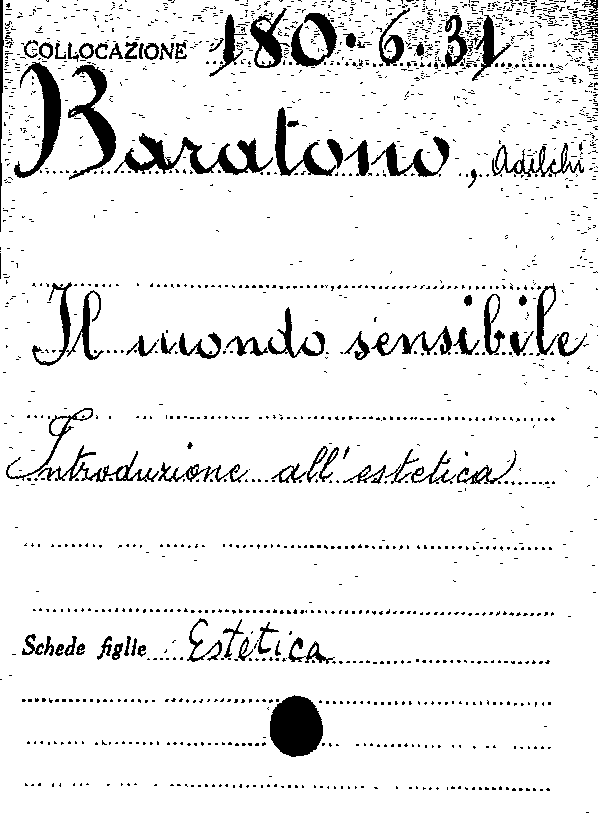 COLLOCAZIONE 180.6.31
Baratono, Adelchi
Il mondo sensibile
(Introduzione all'estetica)
Schede figlie Estetica